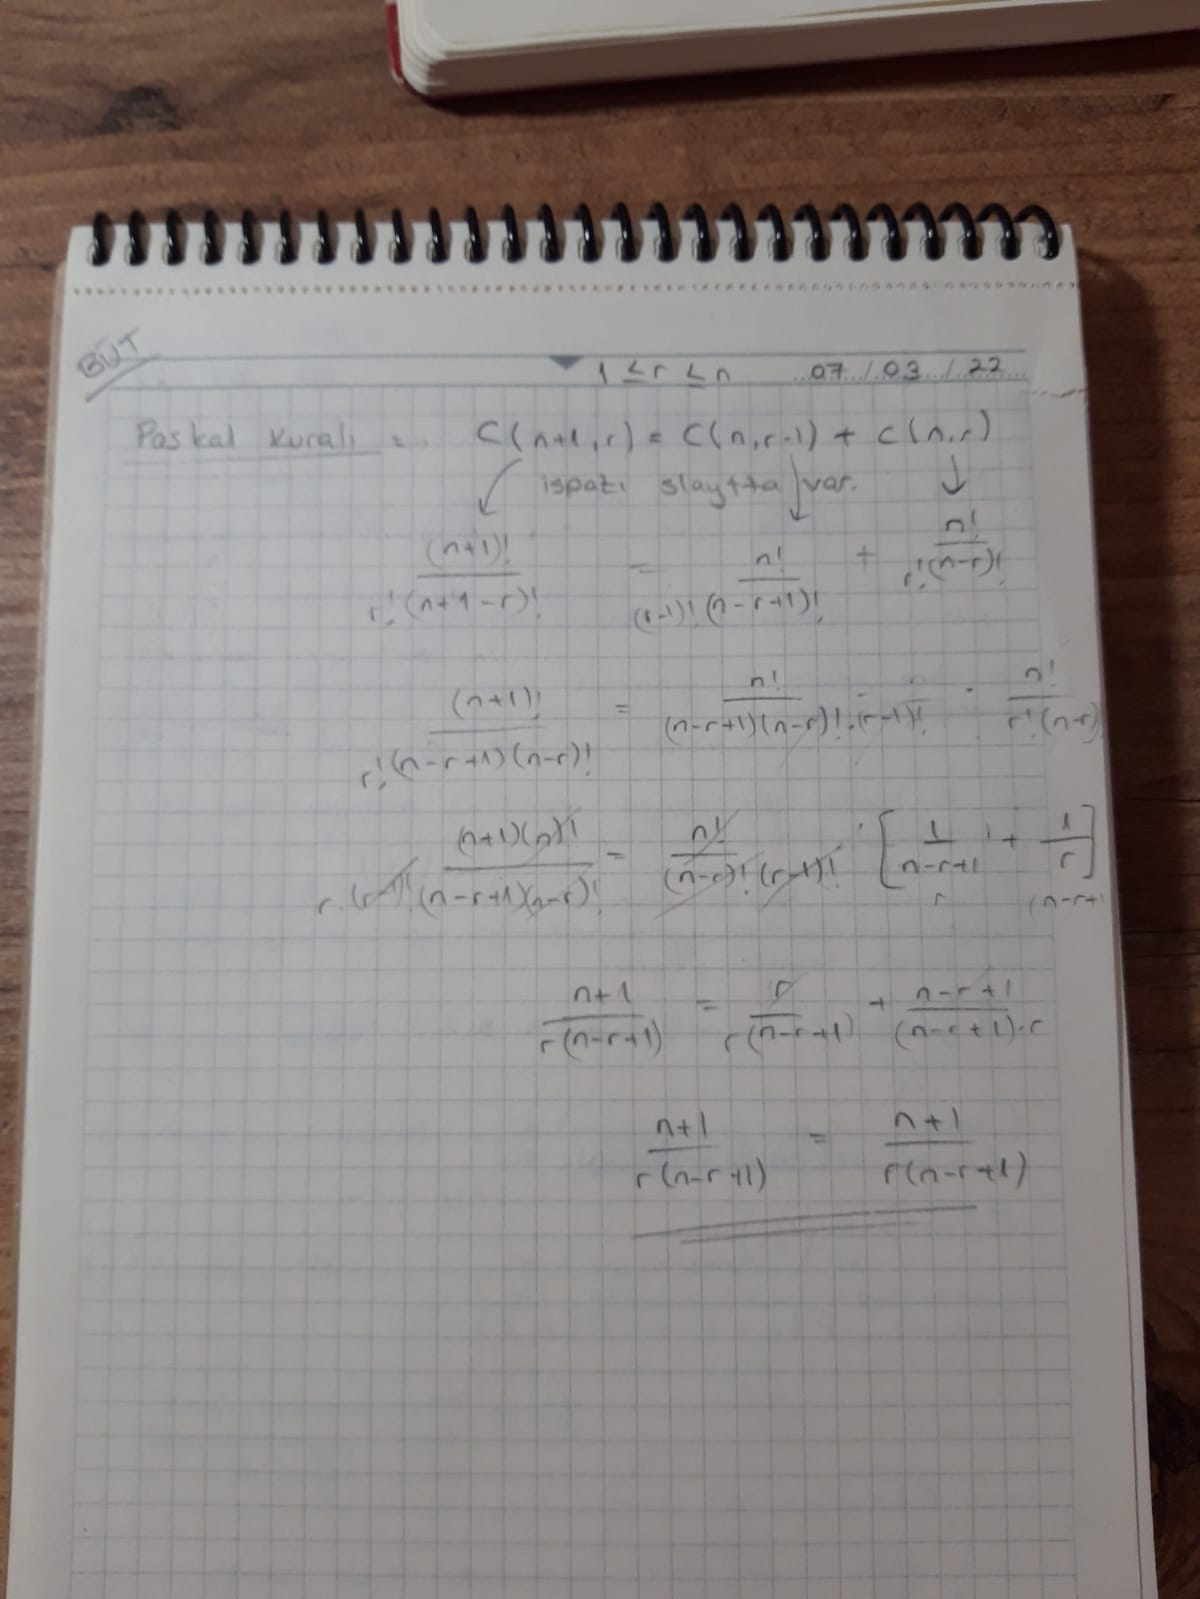 BUT
1 ≤ r ≤ n 07 / 03 / 22
Paskal Kuralı = C(n+1,r) = C(n,r-1) + C(n,r)
ispatı slaytta var.
(n+1)! / r!(n+1-r)! = n! / (r-1)!(n-r+1)! + n! / r!(n-r)!
(n+1)! / r!(n-r+1)(n-r)! = n! / (n-r+1)(n-r)!.(r-1)! . n! / r!(n-r)
(n+1)(n)! / r.(r-1)!(n-r+1)(n-r)! = n! / (n-r)!(r-1)! . [1 / n-r+1 + 1 / r]
r (n-r+1
n+1 / r(n-r+1) = r / r(n-r+1) + n-r+1 / (n-r+1).r
n+1 / r(n-r+1) = n+1 / r(n-r+1)